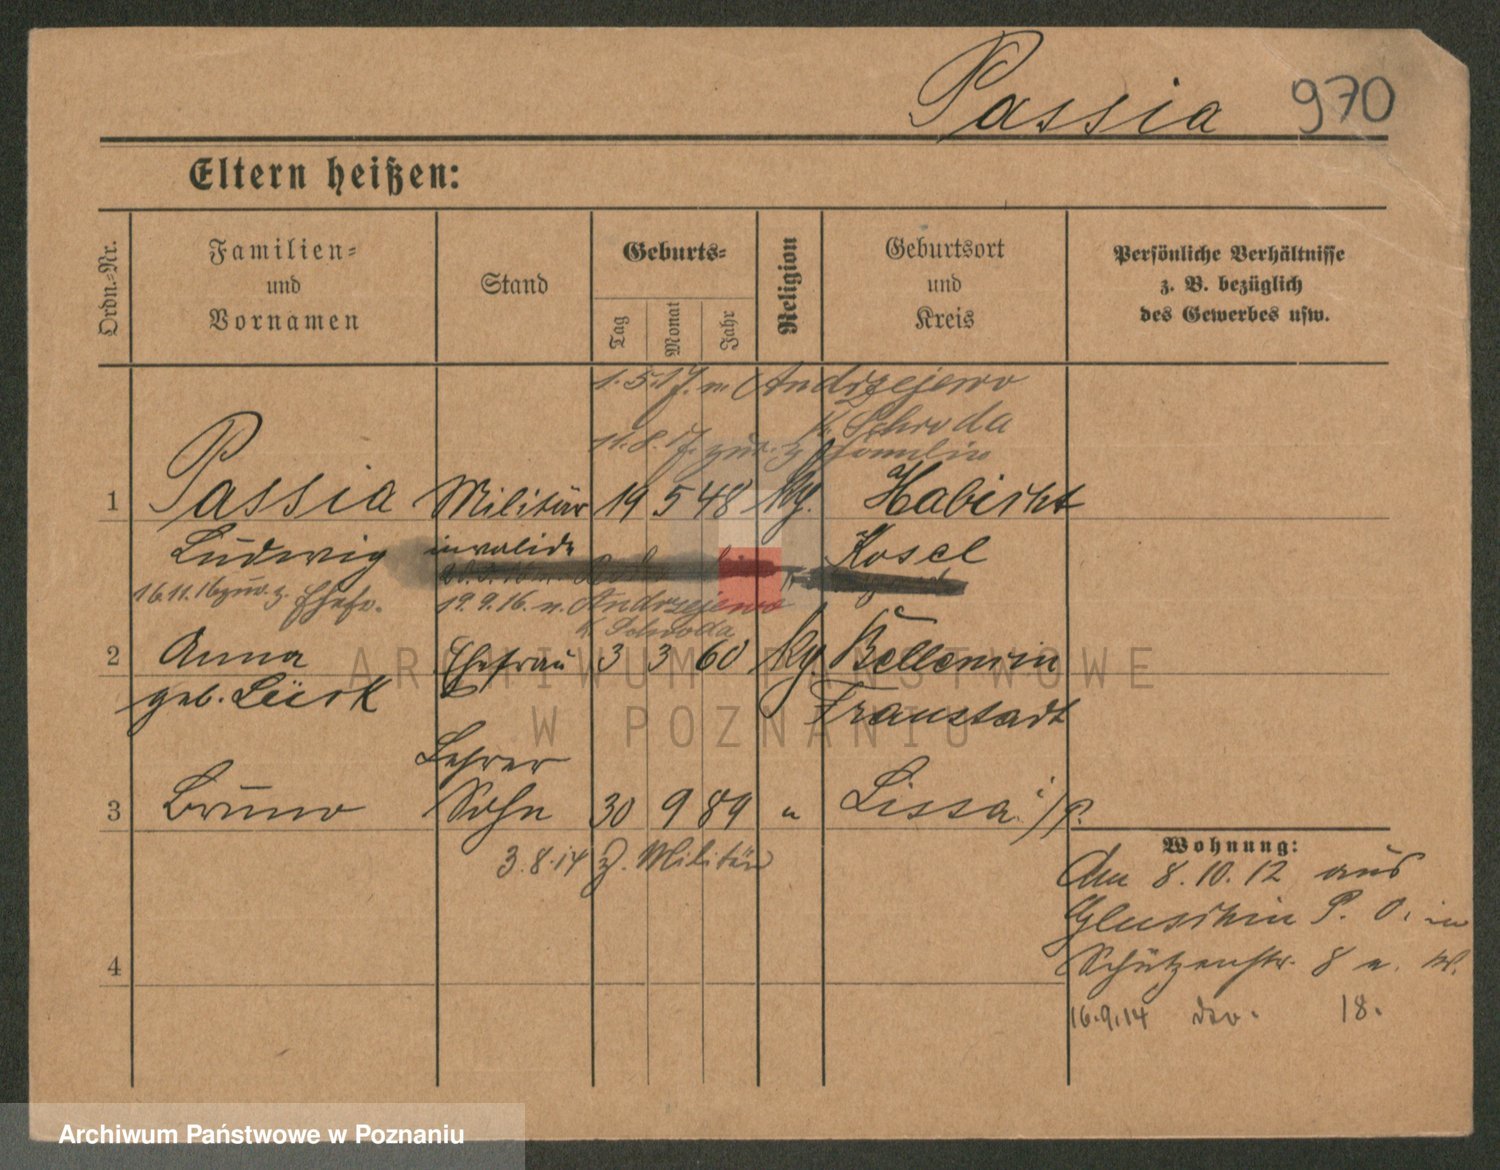 Passia 970
Eltern heißen:
Ordn.-Nr.
Familien- und Vornamen
Stand
Geburts-
Tag
Monat
Jahr
Religion
Geburtsort und Kreis
Persönliche Verhältnisse
z. B. bezüglich
des Gewerbes usw.
1.5.17. n. Andrzejewo
Kr. Schroda
11.8.17. zur. z. Familie
1 Passia Militär 19 5 48 kg. Habicht
Ludwig invalide Kosel
16.11.16 zur. z. Ehefr. 19.9.16. n. Andrzejewo
K. Schroda
2 Anna Ehefrau 3 3 60 kg Bellenrin
geb. Lück Fraustadt
Lehrer
3 Bruno Sohn 30 9 89 " Lissa i/P.
3.8.14 z. Militär
Wohnung:
Am 8.10.12 aus
Gluschin P. O. in
Schützenstr. 8 a. W.
4
16.9.14 18.
ARCHIWUM PAŃSTWOWE
W POZNANIU
Archiwum Państwowe w Poznaniu